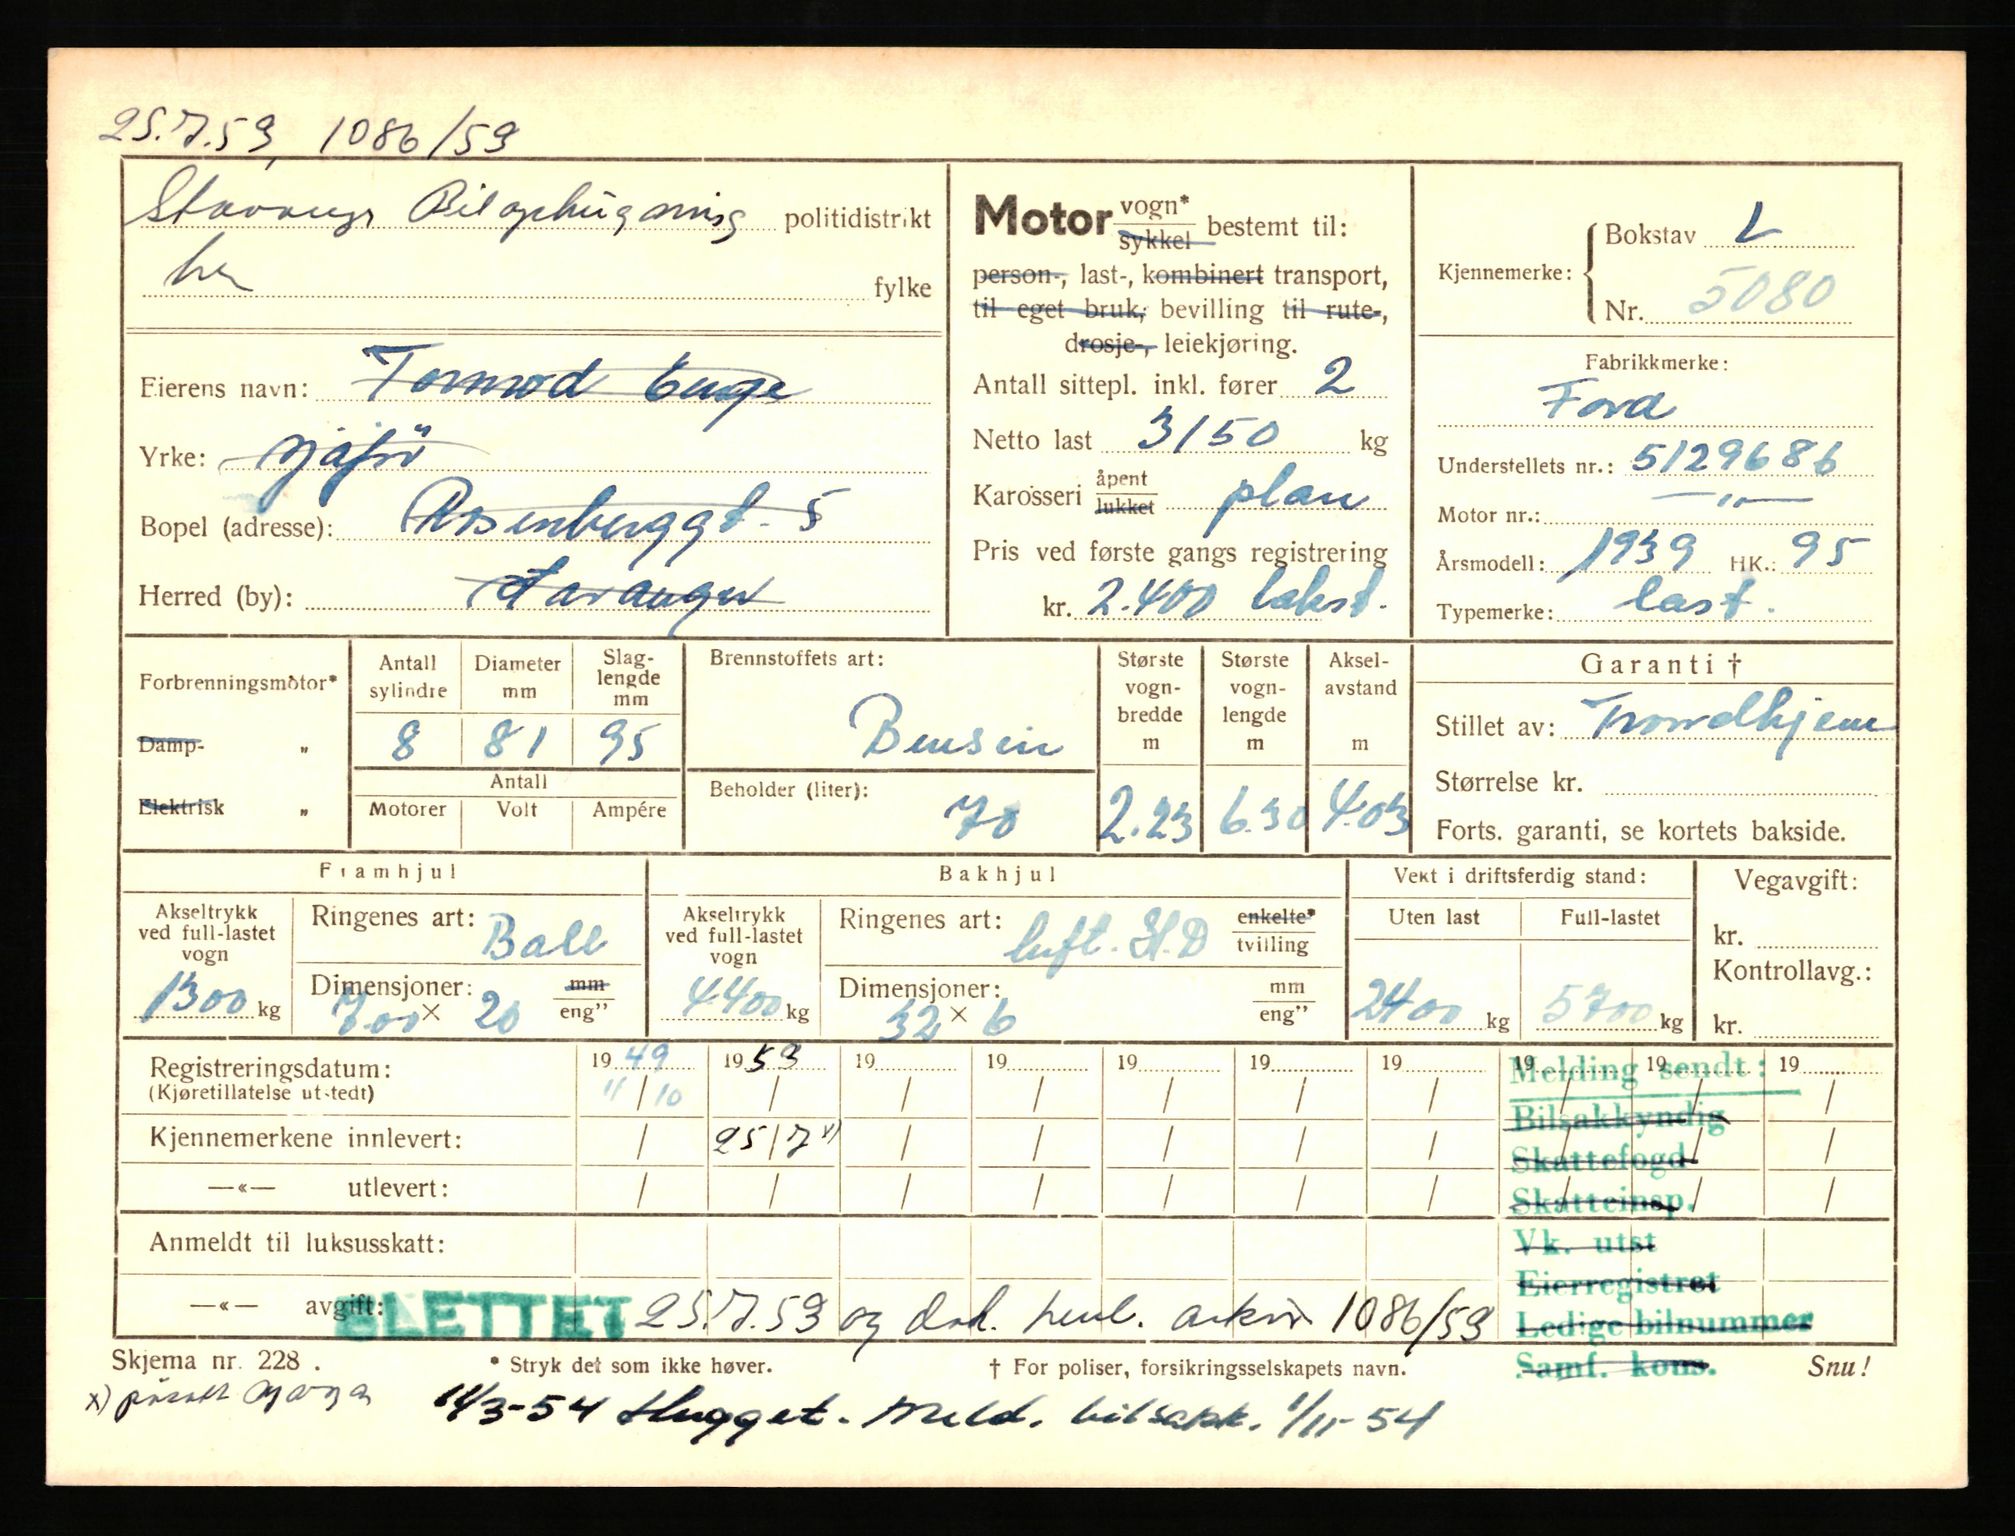 25.7.59, 1086/59
Stavanger Bilophugning politidistrikt
her fylke
Eierens navn: Tormod Enge
Yrke: sjåfør
Bopel (adresse): Rosenberggt. 5
Herred (by): Stavanger
Motor vogn* sykkel bestemt til:
person-, last-, kombinert transport,
til eget bruk, bevilling til rute-,
drosje-, leiekjøring.
Antall sittepl. inkl. fører 2
Netto last 3150 kg
Karosseri åpent lukket plan
Pris ved første gangs registrering
kr. 2.400 takst.
Kjennemerke: Bokstav L
Nr. 5080
Fabrikkmerke:
Ford
Understellets nr.: 5129686
Motor nr.: —"—
Årsmodell: 1939 HK.: 95
Typemerke: last.
Forbrenningsmotor*
Damp- "
Elektrisk "
Antall sylindre 8
Diameter mm 81
Slag-lengde mm 95
Antall
Motorer Volt Ampére
Brennstoffets art:
Bensin
Beholder (liter): 70
Største vogn-bredde m 2.23
Største vogn-lengde m 6.30
Aksel-avstand m 4.03
Garanti †
Stillet av: Trondhjem
Størrelse kr.
Forts. garanti, se kortets bakside.
Framhjul
Akseltrykk ved full-lastet vogn 1300 kg
Ringenes art: Ball
Dimensjoner: 7.00 × 20 mm eng"
Bakhjul
Akseltrykk ved full-lastet vogn 4400 kg
Ringenes art: luft. H.D enkelte* tvilling
Dimensjoner: 32 × 6 mm eng"
Vekt i driftsferdig stand:
Uten last 2400 kg
Full-lastet 5700 kg
Vegavgift:
kr.
Kontrollavg.:
kr.
Registreringsdatum: 1949 1959 19 19 19 19 19 19 19 19
(Kjøretillatelse utstedt) 11/10 / / / / / / / / /
Kjennemerkene innlevert: / 25/7 x) / / / / / / / /
—«— utlevert: / / / / / / / / / /
Anmeldt til luksusskatt:
—«— avgift: SLETTET 25.7.59 og dok. henl. arkiv 1086/59
Melding sendt:
Bilsakkyndig
Skattefogd
Skatteinsp.
Vk. utst
Eierregistret
Ledige bilnummer
Samf. kons.
Skjema nr. 228.
* Stryk det som ikke høver.
† For poliser, forsikringsselskapets navn.
Snu!
11/3-54 Hugget. Meld. bilsakk. 1/11-54